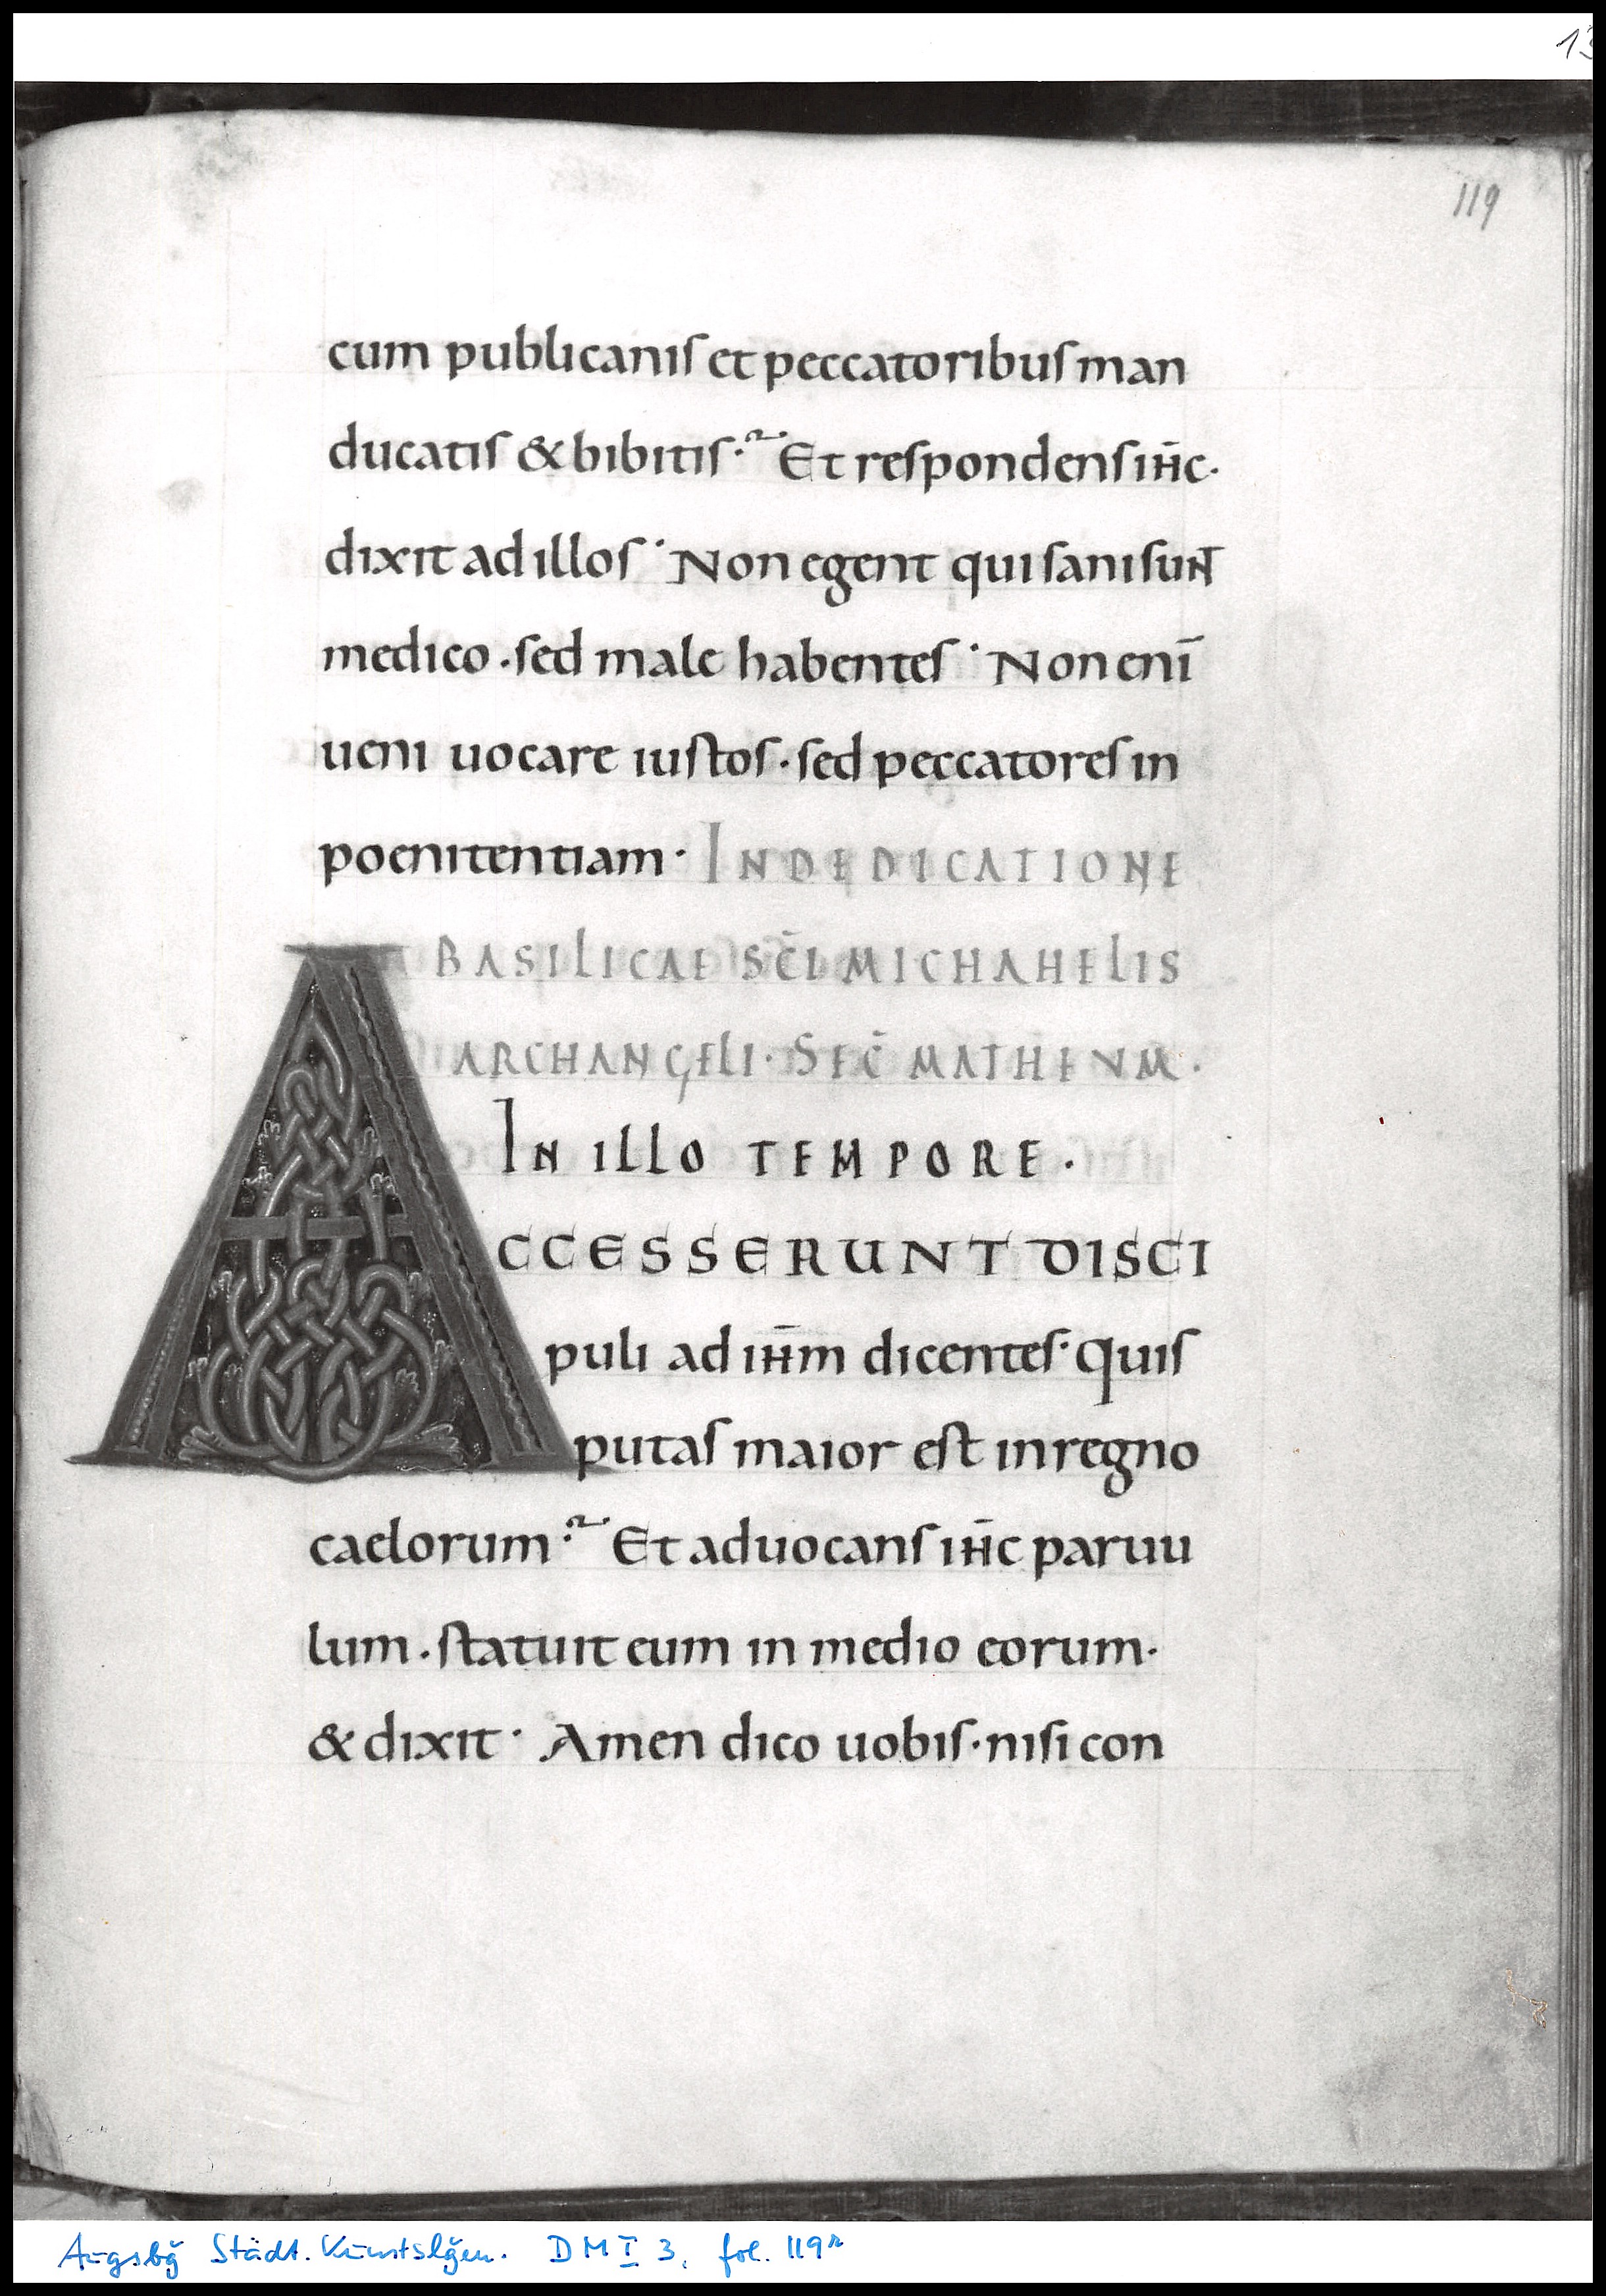 119
cum publicanis et peccatoribus man
ducatis & bibitis. Et respondens ih̅c.
dixit ad illos. Non egent qui sani sunt
medico. sed male habentes. Non eni̅
ueni uocare iustos. sed peccatores in
poenitentiam. IN DEDICATIONE
BASILICAE SC̅I MICHAHELIS
ARCHANGELI. SEC̅ MATHEUM.
IN ILLO TEMPORE.
ACCESSERUNT DISCI
puli ad ih̅m dicentes. Quis
putas maior est in regno
caelorum. Et aduocans ih̅c paruu
lum. statuit eum in medio eorum.
& dixit. Amen dico uobis. nisi con
Augsbg Städt. Kunstslgen. DM I 3, fol. 119r